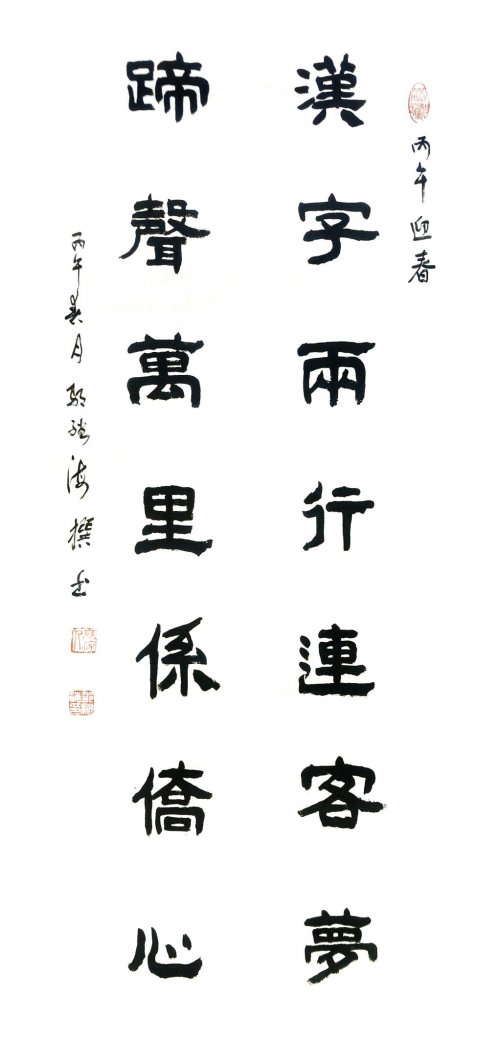 丙午迎春
漢字兩行連客夢
蹄聲萬里係僑心
丙午春月 海撰書